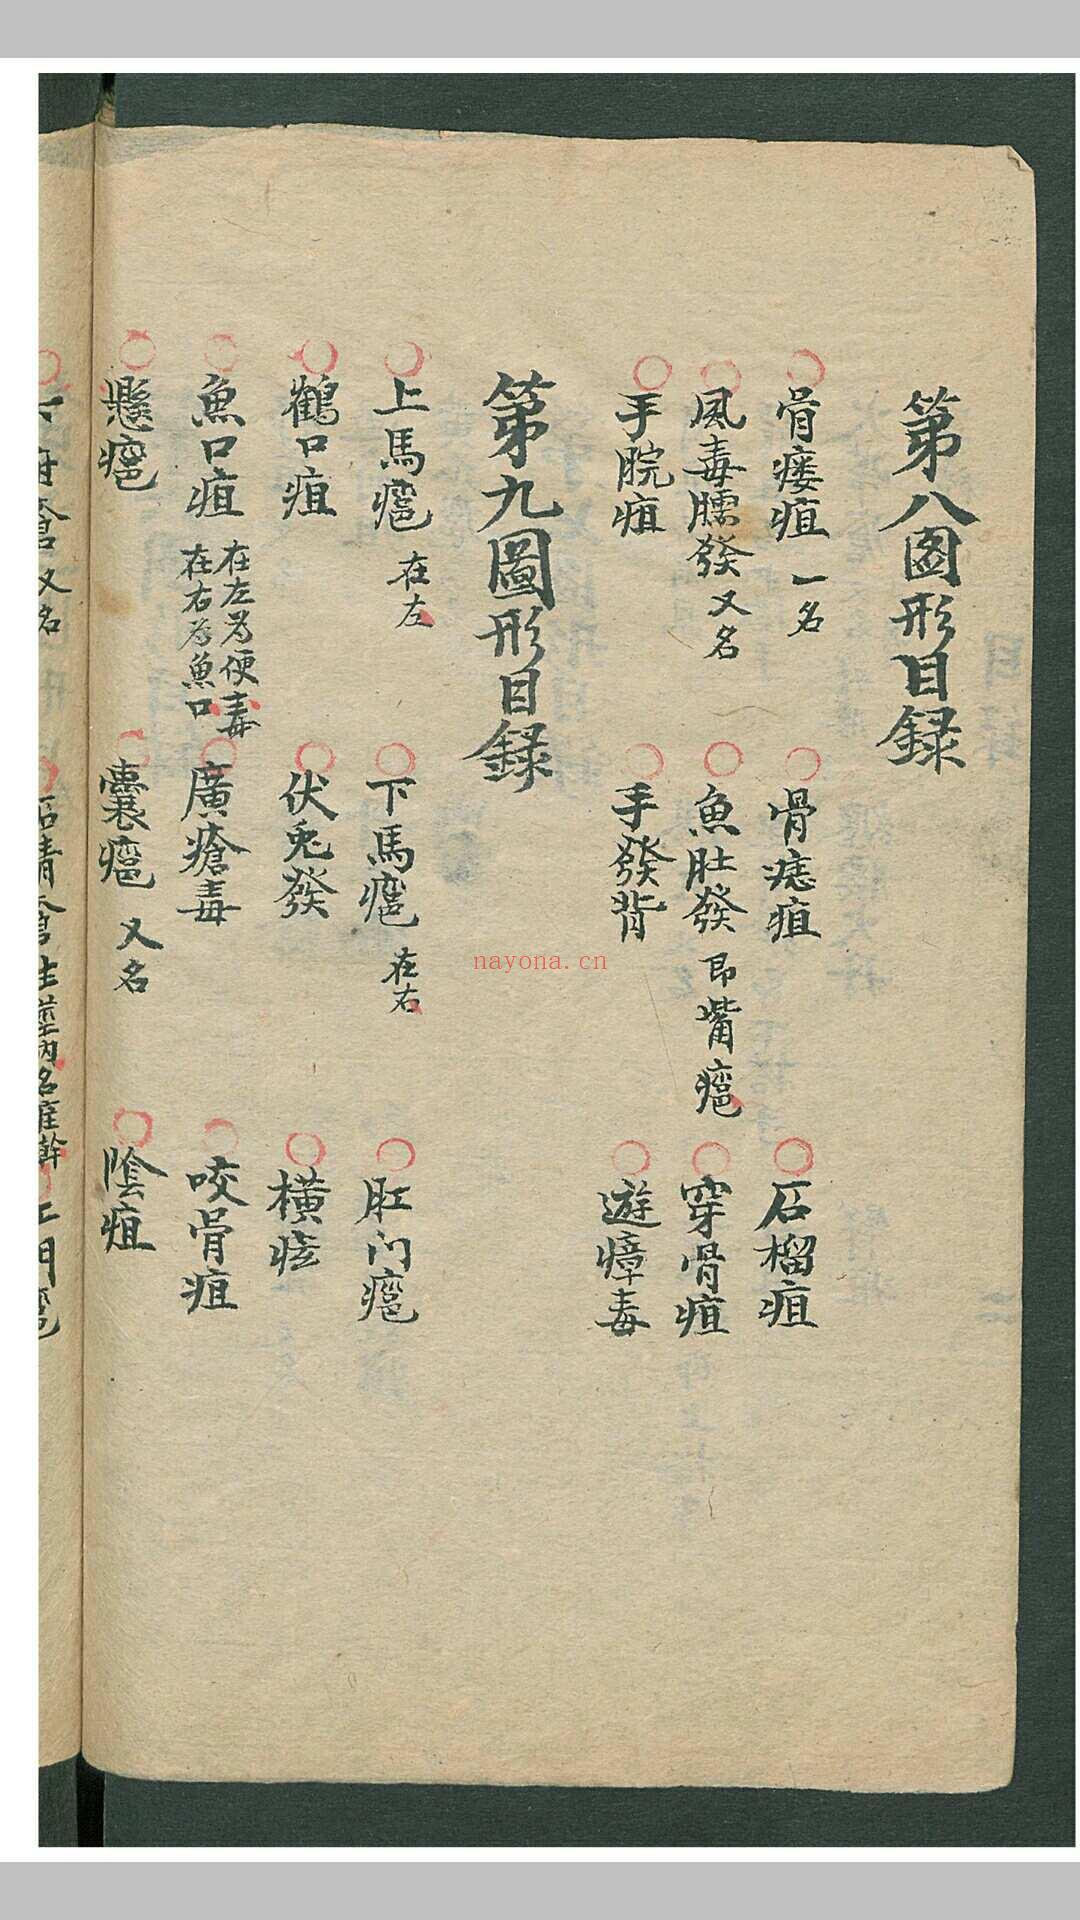 第八圖形目録
骨瘘疽 一名 骨痣疽 石榴疽
風毒臑發 又名 魚肚發 即嘴癰 穿骨疽
手腕疽 手發背 遊瘴毒
第九圖形目録
上馬癰 在左 下馬癰 在右 肛门癰
鶴口疽 伏兎發 横痃
魚口疽 在左为便毒 在右为魚口 廣瘡毒 咬骨疽
懸癰 囊癰 又名 陰疽
nayona.cn